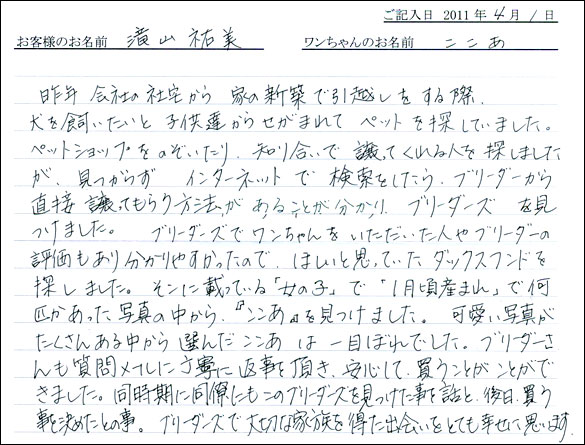 ご記入日 2011年4月1日
お客様のお名前 濱山祐美 ワンちゃんのお名前 ここあ
昨年 会社の社宅から 家の新築で引越しをする際、
犬を飼いたいと 子供達からせがまれて ペットを探していました。
ペットショップをのぞいたり、知り合いで 譲ってくれる人を探しました
が、見つからず インターネットで 検索をしたら、ブリーダーから
直接 譲ってもらう方法が あることが分かり、ブリーダーズ を見
つけました。 ブリーダーズで ワンちゃんを いただいた人や ブリーダーの
評価もあり 分かりやすかったので、ほしいと思っていた ダックスフンドを
探しました。そこに載っている「女の子」で「1月頃産まれ」で 何
匹かあった 写真の中から、『ここあ』を見つけました。 可愛い写真が
たくさんある中から 選んだ ここあ は 一目ぼれでした。ブリーダーさ
んも 質問メールに 丁寧に 返事を頂き、安心して、買うことがことがで
きました。同時期に同僚にもこのブリーダーズを見つけた事を話と、後日、買う
事を決めたとの事。ブリーダーズで 大切な家族を得た出会いをとても幸せに思います。